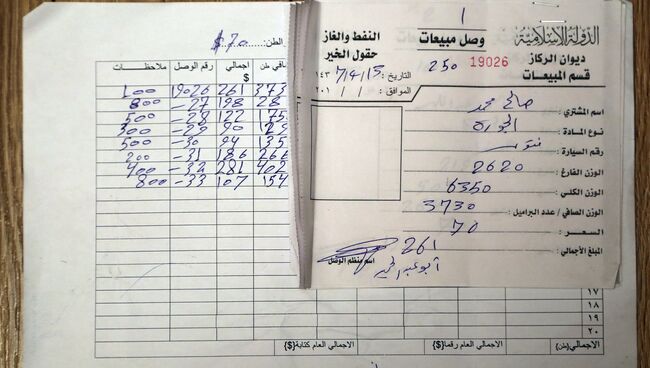 الدولة الإسلامية
ديوان الركاز
قسم المبيعات
1
وصل مبيعات
19026
250
النفط والغاز
حقول الخير
التاريخ : 15/4/7 143
الموافق : / / 201
اسم المشتري : صالح محمد
نوع المادة :
رقم السيارة :
الوزن الفارغ : 2620
الوزن الكلي : 6350
الوزن الصافي / عدد البراميل : 3730
السعر : 70
المبلغ الأجمالي : 261
اسم منظم الوصل
الطن: $70
ملاحظات رقم الوصل اجمالي $ صافي طن
100 19026 261 373
800 27- 198 28
500 28- 122 175
300 29- 90 129
500 30- 94 135
200 31- 186 266
400 32- 281 402
800 33- 107 154
١٧
١٨
١٩
٢٠
الاجمالي (طن) الاجمالي العام رقما{$} الاجمالي العام كتابة{$}